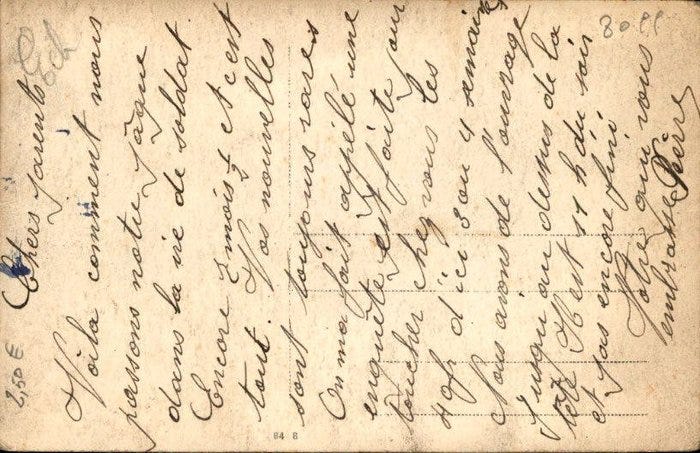 Chers parents
Voila comment nous
passons notre Pâque
dans la vie de soldat
Encore 2 mois ½ et c'est
tout. Vos nouvelles
sont toujours rares
On m'a fait appélé une
enquête est faite pour
toucher chez vous les
40f d'ici 3 ou 4 semaines
Nous avons de l'ouvrage
Jusqu'au dessus de la
tête Il est 11 h du soir
et pas encore fini
Votre qui vous
embrasse Pierre
2,50 €
84 8